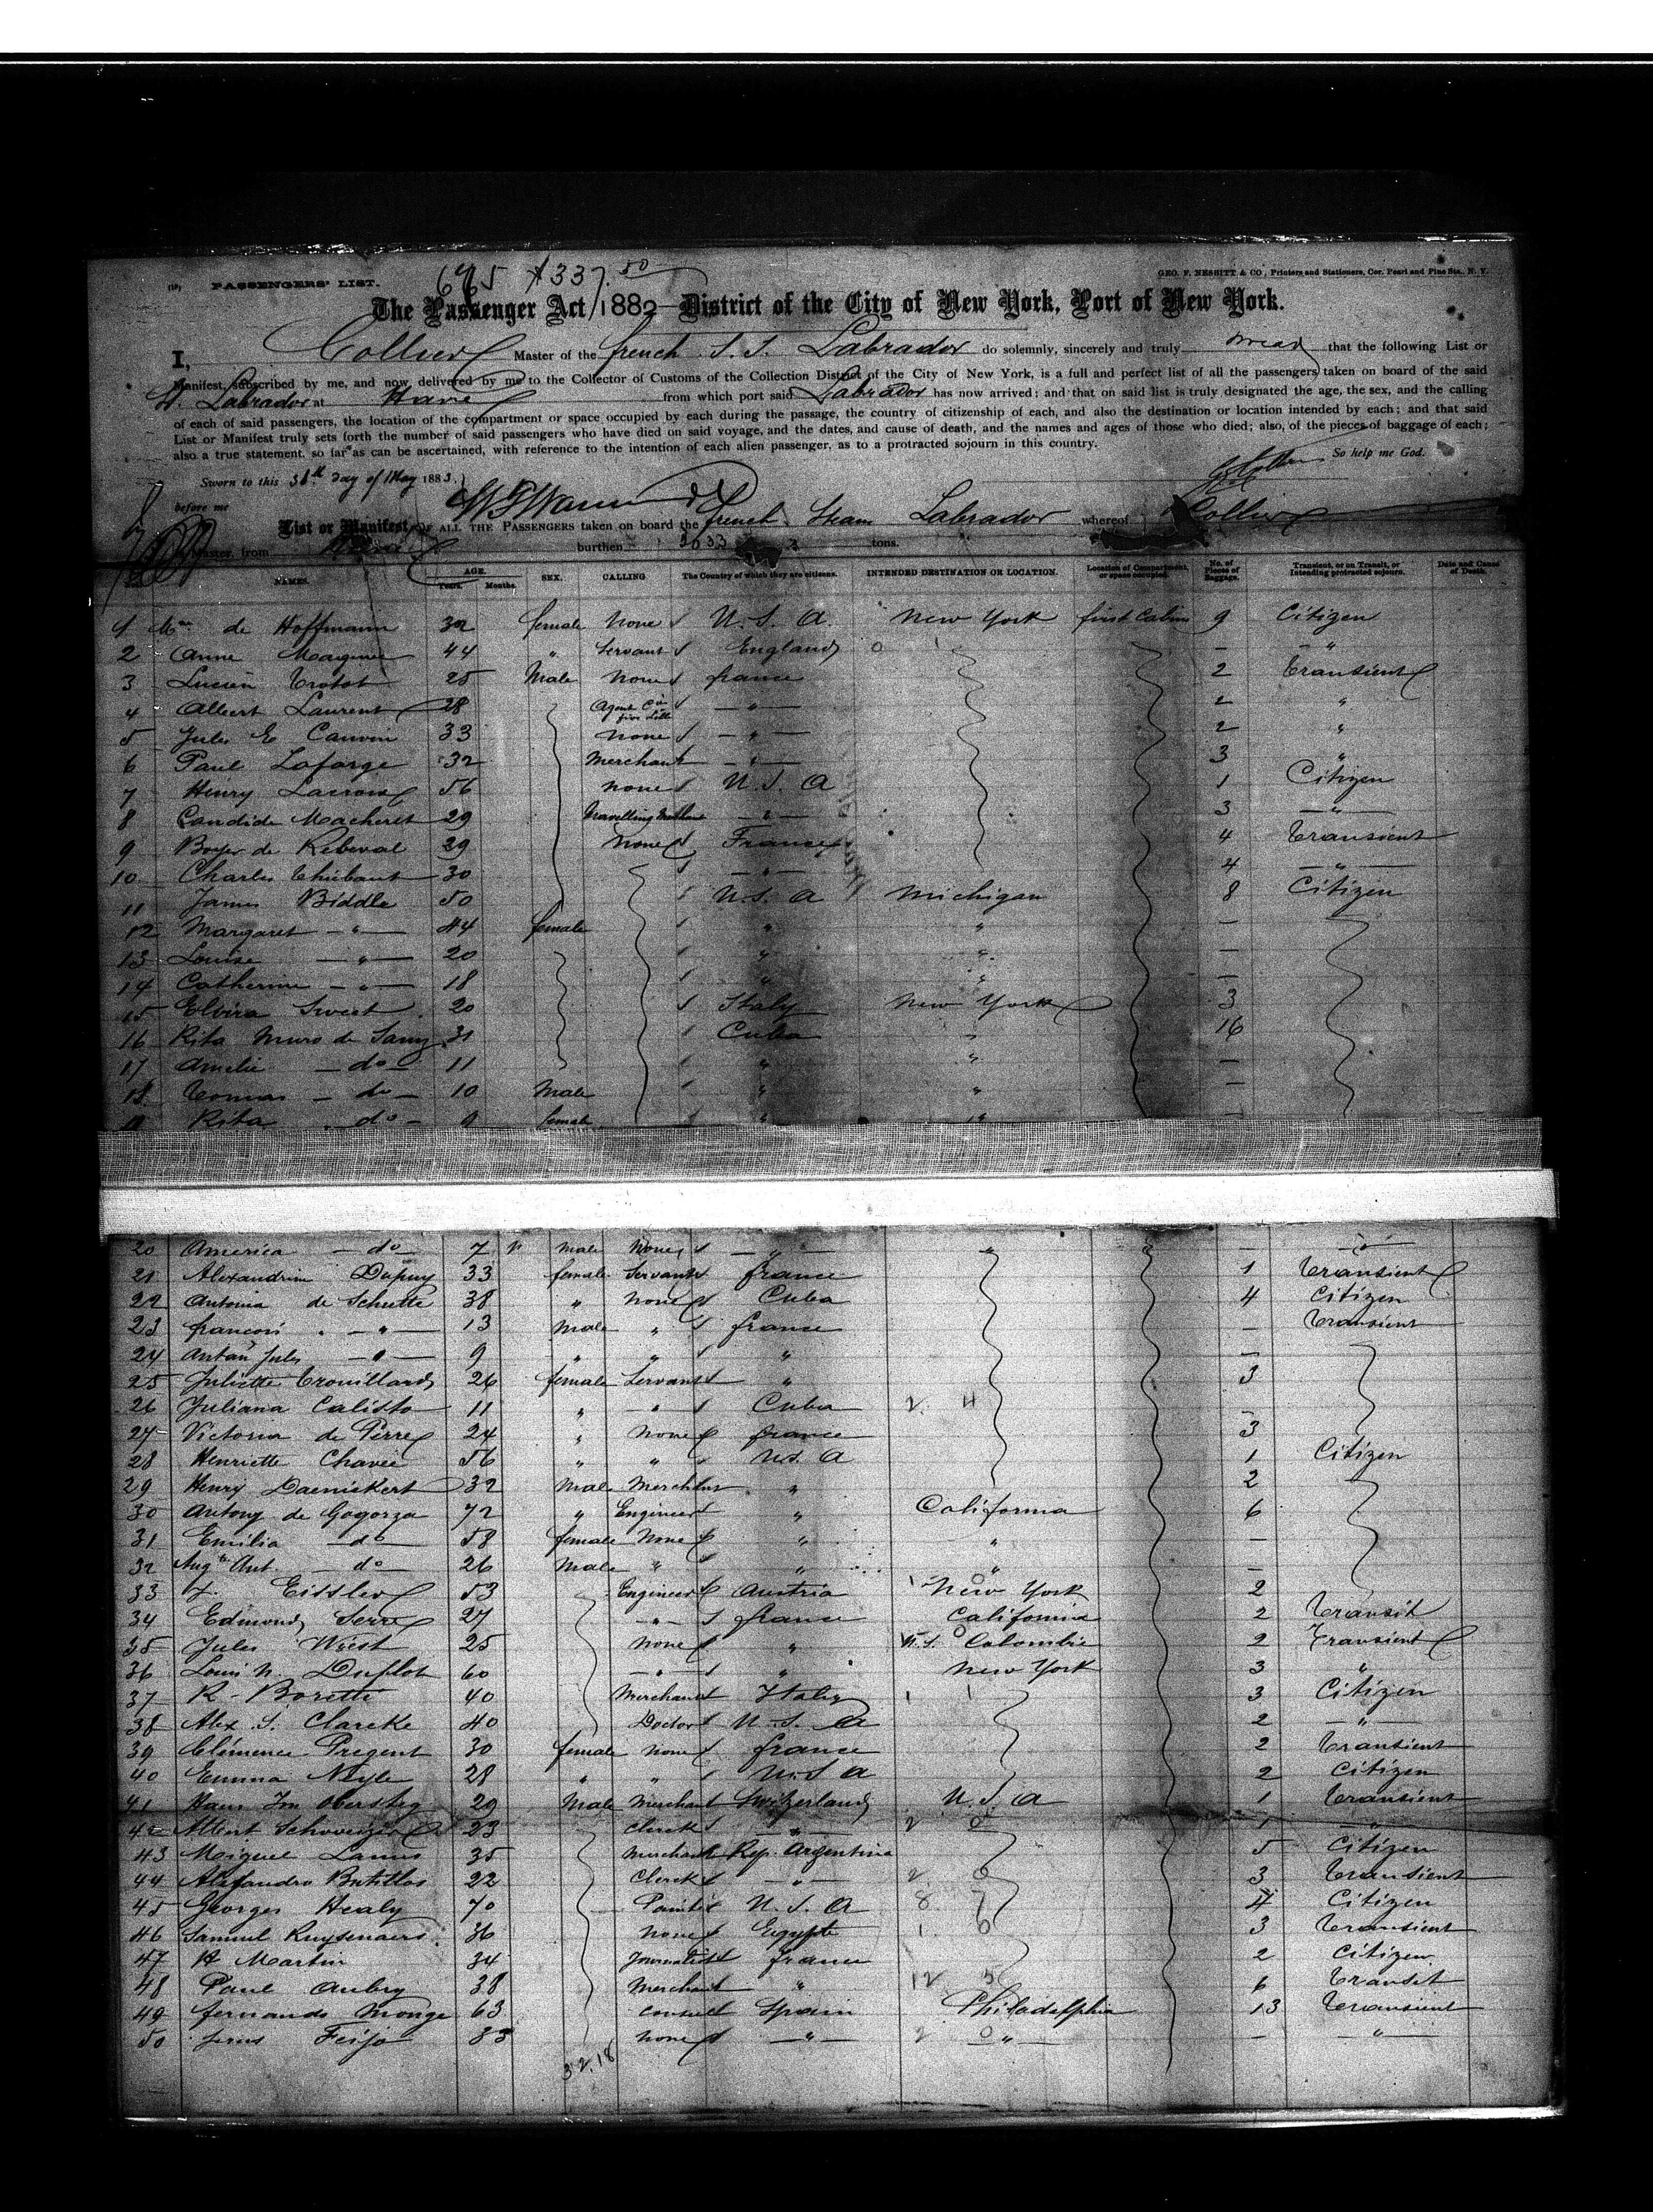 665 $337.50
(12) PASSENGERS' LIST.
GEO. F. NESBITT & CO., Printers and Stationers, Cor. Pearl and Pine Sts., N. Y.
The Passenger Act, 1882—District of the City of New York, Port of New York.
I, Collier Master of the french S.S. Labrador do solemnly, sincerely and truly swear that the following List or
Manifest, subscribed by me, and now delivered by me to the Collector of Customs of the Collection District of the City of New York, is a full and perfect list of all the passengers taken on board of the said
St. Labrador at Havre from which port said Labrador has now arrived; and that on said list is truly designated the age, the sex, and the calling
of each of said passengers, the location of the compartment or space occupied by each during the passage, the country of citizenship of each, and also the destination or location intended by each; and that said
List or Manifest truly sets forth the number of said passengers who have died on said voyage, and the dates, and cause of death, and the names and ages of those who died; also, of the pieces of baggage of each;
also a true statement, so far as can be ascertained, with reference to the intention of each alien passenger, as to a protracted sojourn in this country. So help me God.
Sworn to this 31th day of May 1883.
before me
List or Manifest OF ALL THE PASSENGERS taken on board the french Steam Labrador whereof Collier
is Master, from Havre burthen 3633 tons.
NAMES. AGE. Years. Months. SEX. CALLING The Country of which they are citizens. INTENDED DESTINATION OR LOCATION. Location of Compartment, or space occupied. No. of Pieces of Baggage. Transient, or in Transit, or Intending protracted sojourn. Date and Cause of Death.
1 Mme de Hoffmann 32 female None U.S.A. New York first Cabin 9 Citizen
2 Anne 44 " Servant England — "
3 Lucien Trotot 25 Male None france 2 Transient
4 Albert Laurent 28 — " — 2 "
5 Jules E Cauvin 33 None — " — 2 "
6 Paul Lafarge 32 Merchant — " — 3 "
7 Henry Lacroix 56 None U.S.A 1 Citizen
8 Candide Macheret 29 Travelling — " — 3 — " —
9 Boyer de Rebeval 29 None France 4 Transient
10 Charles Thiebaut 30 — " — 4 — " —
11 James Biddle 50 U.S.A Michigan 8 Citizen
12 Margaret — " — 44 female " " —
13 Louise — " — 20 " " —
14 Catherine — " — 18 " " —
15 Elvira Sweet 20 Italy New York 3
16 Rita Muro de 31 Cuba " 16
17 Amelie — do — 11 " " —
18 Tomas — do — 10 Male " " —
19 Rita — do — 9 female " " —
20 America — do — 7 Male None — " — " — "
21 Alexandrine Dupuy 33 female Servant france 1 Transient
22 Antonia de Schutte 38 " None Cuba 4 Citizen
23 francois — " — 13 Male " france — Transient
24 Jules — " — 9 " " " —
25 Juliette Trouillard 26 female Servant " 3
26 Juliana Calisto 11 " — " — Cuba 2 4 —
27 Victoria de Pierre 24 " None france 3
28 Henriette Chavée 56 " " U.S.A 1 Citizen
29 Henry Daenickert 32 Male Merchant " 2
30 Antony de Gogorza 72 " Engineer " California 6
31 Emilia — do 58 female None " " —
32 Augte Ant. — do 26 Male " " " —
33 Eissler 53 Engineer Austria New York 2
34 Edmond Serre 27 — " — france California 2 Transit
35 Jules Wiest 25 None " U.S. Colombie 2 Transient
36 Louis N. Duplot 60 — " — " New York 3 "
37 R. Boretti 40 Merchant Italy 3 Citizen
38 Alex S. Clarcke 40 Doctor U.S.A 2 — " —
39 Clémence Pregent 30 female None france 2 Transient
40 Emma Neyle 28 " " U.S.A 2 Citizen
41 Hans Im Obersteg 29 Male Merchant Switzerland U.S.A 1 Transient
42 Albert Schweizer 23 Clerck — " — 2 0 1 — " —
43 Miguel Lanus 35 Merchant Rep. Argentina 5 Citizen
44 Alejandro 22 Clerck — " — 2 0 3 Transient
45 Georges Healy 70 Painter U.S.A 8 7 4 Citizen
46 Samuel Ruyssenaers 36 None Egypte 1 0 3 Transient
47 H Martin 34 Journalist france 2 Citizen
48 Paul Aubry 38 Merchant " 12 5 6 Transit
49 fernando Monge 63 Consul Spain Philadelphia 13 Transient
50 Jesus Feijo 33 None — " — 2 0 " — — " —
32.18